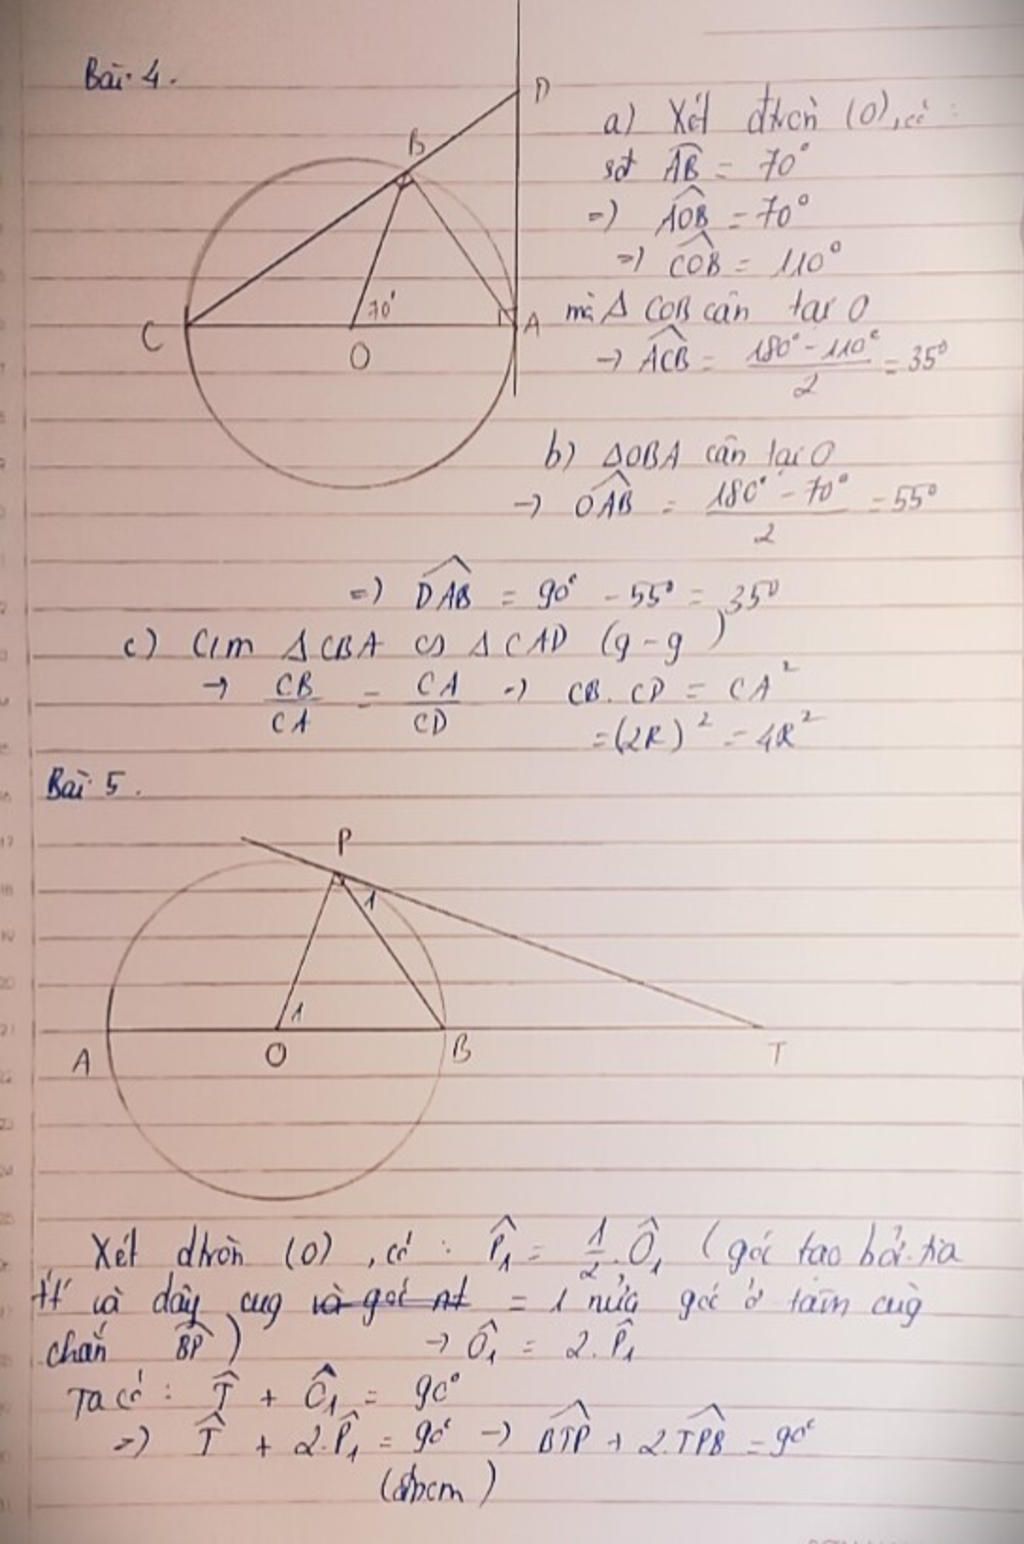 Bài 4.
D
B
C
O
70°
A
a) Xét đtròn (O), có :
sđ AB = 70°
=) AOB = 70°
=) COB = 110°
mà Δ COB cân tại O
→ ACB = (180° - 110°)/2 = 35°
b) ΔOBA cân tại O
→ OAB = (180° - 70°)/2 = 55°
=) DAB = 90° - 55° = 35°
c) C/m Δ CBA ∽ Δ CAD (g-g)
→ CB/CA = CA/CD → CB. CD = CA²
= (2R)² = 4R²
Bài 5.
P
1
1
A
O
B
T
Xét đtròn (O), có : P₁ = 1/2.O₁ (góc tạo bởi tia
tt' và dây cug và góc nt = 1 nửa góc ở tâm cùg
chắn BP) → O₁ = 2.P₁
Ta có : T + O₁ = 90°
=) T + 2.P₁ = 90° → BTP + 2.TPB = 90°
(đpcm)